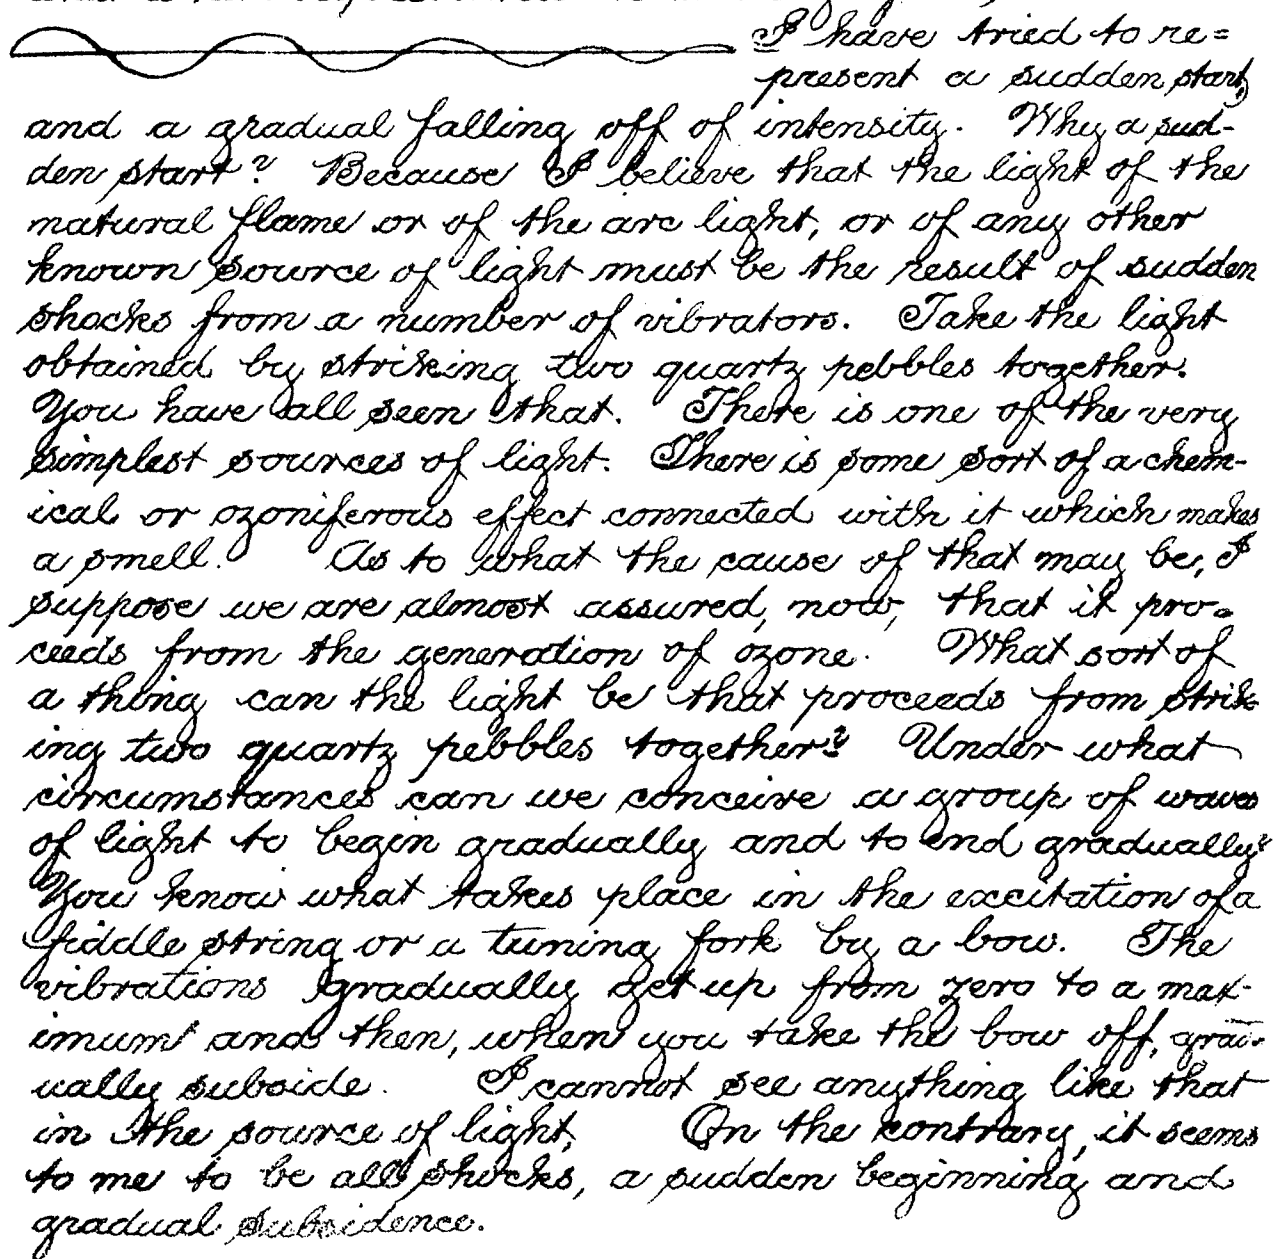 I have tried to re=
present a sudden start,
and a gradual falling off of intensity. Why a sud-
den start? Because I believe that the light of the
natural flame or of the arc light, or of any other
known source of light must be the result of sudden
shocks from a number of vibrators. Take the light
obtained by striking two quartz pebbles together.
You have all seen that. There is one of the very
simplest sources of light. There is some sort of a chem-
ical or ozoniferous effect connected with it which makes
a smell. As to what the cause of that may be, I
suppose we are almost assured, now, that it pro=
ceeds from the generation of ozone. What sort of
a thing can the light be that proceeds from strik-
ing two quartz pebbles together? Under what
circumstances can we conceive a group of waves
of light to begin gradually and to end gradually?
You know what takes place in the excitation of a
fiddle string or a tuning fork by a bow. The
vibrations gradually get up from zero to a max-
imum and then, when you take the bow off, grad-
ually subside. I cannot see anything like that
in the source of light. On the contrary, it seems
to me to be all shocks, a sudden beginning and
gradual subsidence.